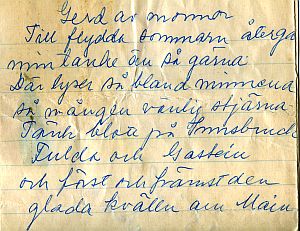 Gerd av mormor
Till flydda sommarn återgå
min tanke än så gärna
Där lyser så bland minnena
så mången vänlig stjärna
Tänk blott på Innsbruck
Fulda och Gastein
och först och främst den
glada kvällen am Main